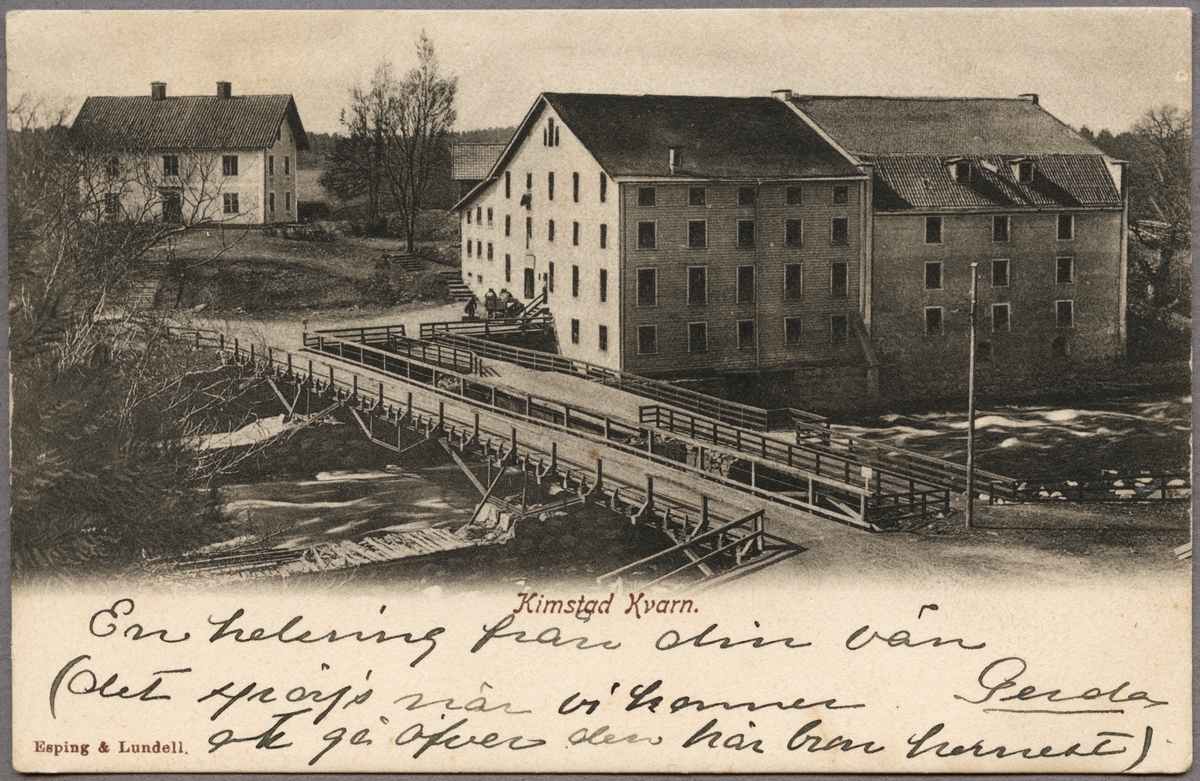 Kimstad Kvarn.
En helsning från din vän
(det spörjs när vi kommer Gerda
att gå öfver den här bron hernest)
Esping & Lundell.